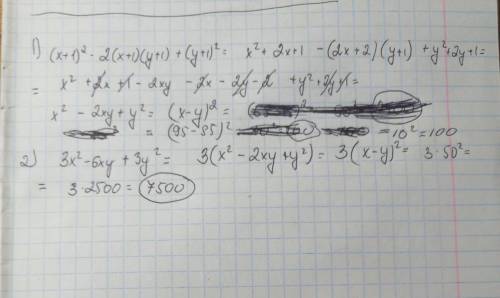 1) (x+1)² - 2(x+1)(y+1) + (y+1)² = x² + 2x+1 - (2x+2)(y+1) + y²+2y+1=
= x² + 2x + 1 - 2xy - 2x - 2y - 2 + y² + 2y+1 =
x² - 2xy + y² = (x-y)² =
= (95-85)² = 10² = 100
2) 3x² - 6xy + 3y² = 3(x² - 2xy + y²) = 3(x-y)² = 3·50² =
= 3·2500 = 7500